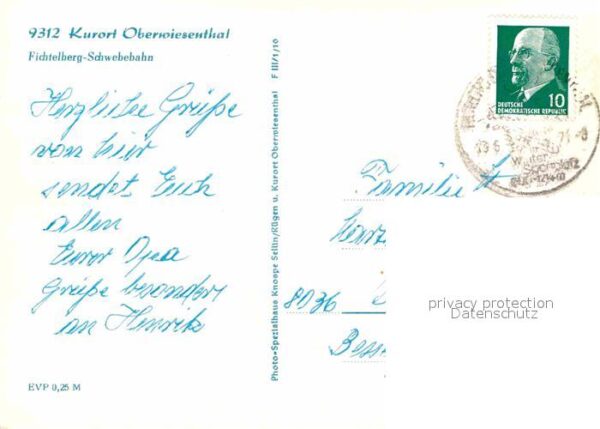 9312 Kurort Oberwiesenthal
Fichtelberg-Schwebebahn
Herzliche Grüße
von hier
sendet Euch
allen
Eurer Opa
Grüße besonders
an Henrik
EVP 0,25 M
Photo-Spezialhaus Knospe Sellin/Rügen u. Kurort Oberwiesenthal F III/1/10
10
DEUTSCHE
DEMOKRATISCHE REPUBLIK
Familie
8036
privacy protection
Datenschutz